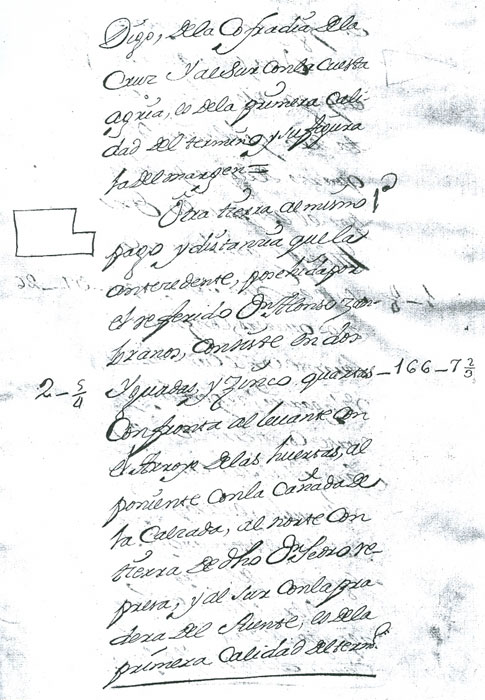 Digo, dela Cofradia dela
Cruz Y al Sur con la Cuesta
agria, es dela primera Cali-
dad del termino y su figura
la del margen =
Otra tierra al mismo 1ª
pago y distancia que la
antecedente, posehida por
el referido Dn Alonso zam-
branos, Consiste en dos
2-5/4 Yguadas, y Zinco quartas - 166-7 2/3
Confronta al levante con
el Arroyo delas huertas, al
poniente Conla Cañada de
la Calzada, al norte Con
tierra de dho Dn Pedro re
presa, y al Sur Conla pra
dera del Fuente, es dela
primera Calidad del termo